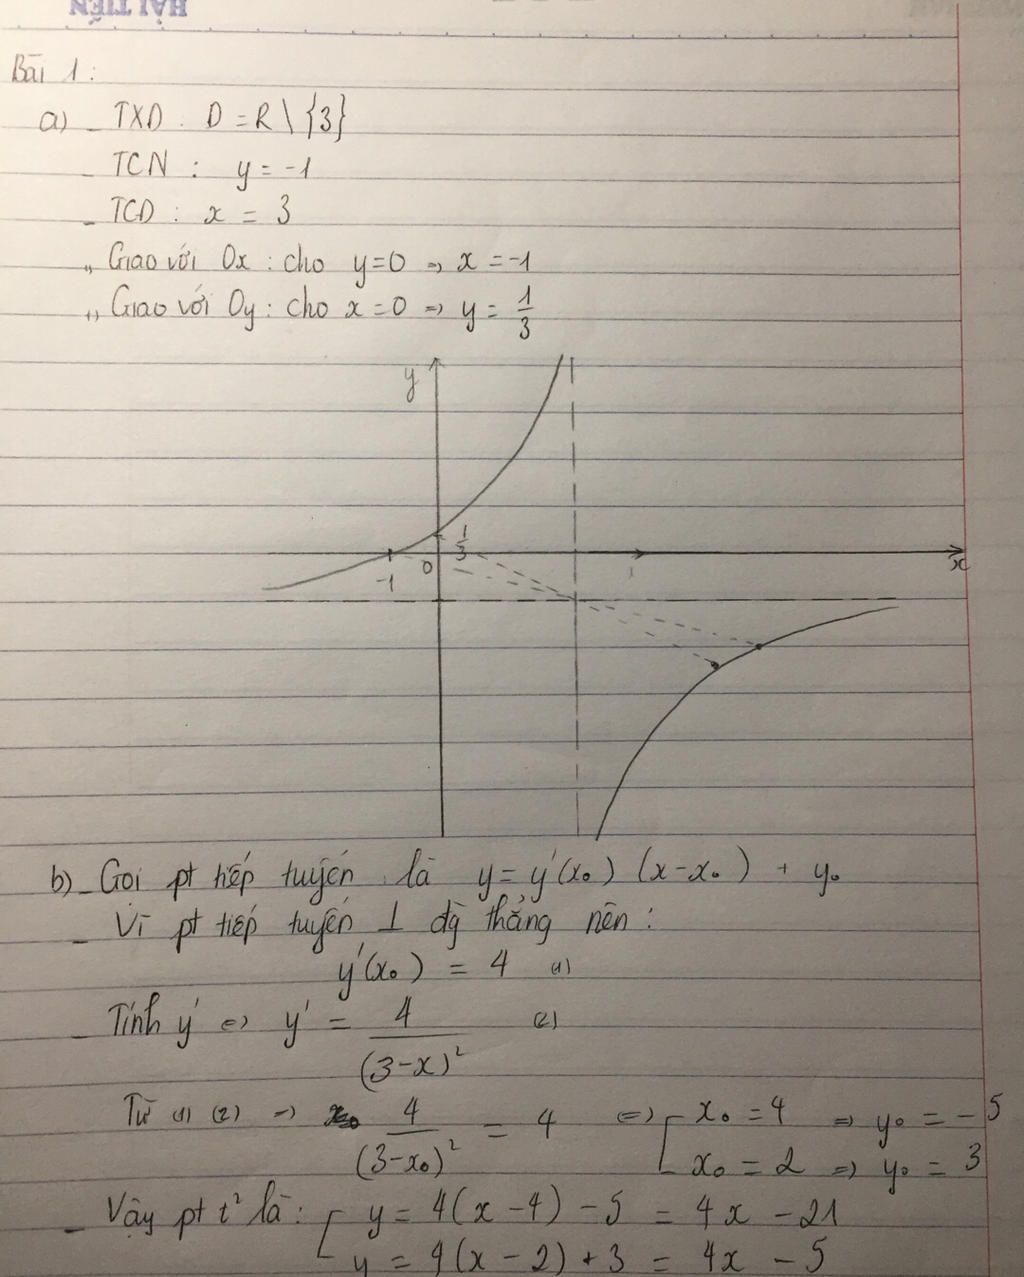 HẢI TIẾN
Bài 1:
a) - TXD : D = R \ {3}
- TCN : y = -1
- TCD : x = 3
" Giao với Ox : cho y=0 => x = -1
" Giao với Oy : cho x=0 => y = 1/3
y
1/3
-1 0 x
b) - Gọi pt tiếp tuyến là y = y'(x₀) (x-x₀) + y₀
- Vì pt tiếp tuyến ⊥ đg thẳng nên :
y'(x₀) = 4 (1)
- Tính y' => y' = 4/(3-x)² (2)
Từ (1) (2) => 4/(3-x₀)² = 4 <=> [ x₀ = 4 => y₀ = -5
x₀ = 2 => y₀ = 3
- Vậy pt t² là : [ y = 4(x-4) - 5 = 4x - 21
y = 4(x-2) + 3 = 4x - 5